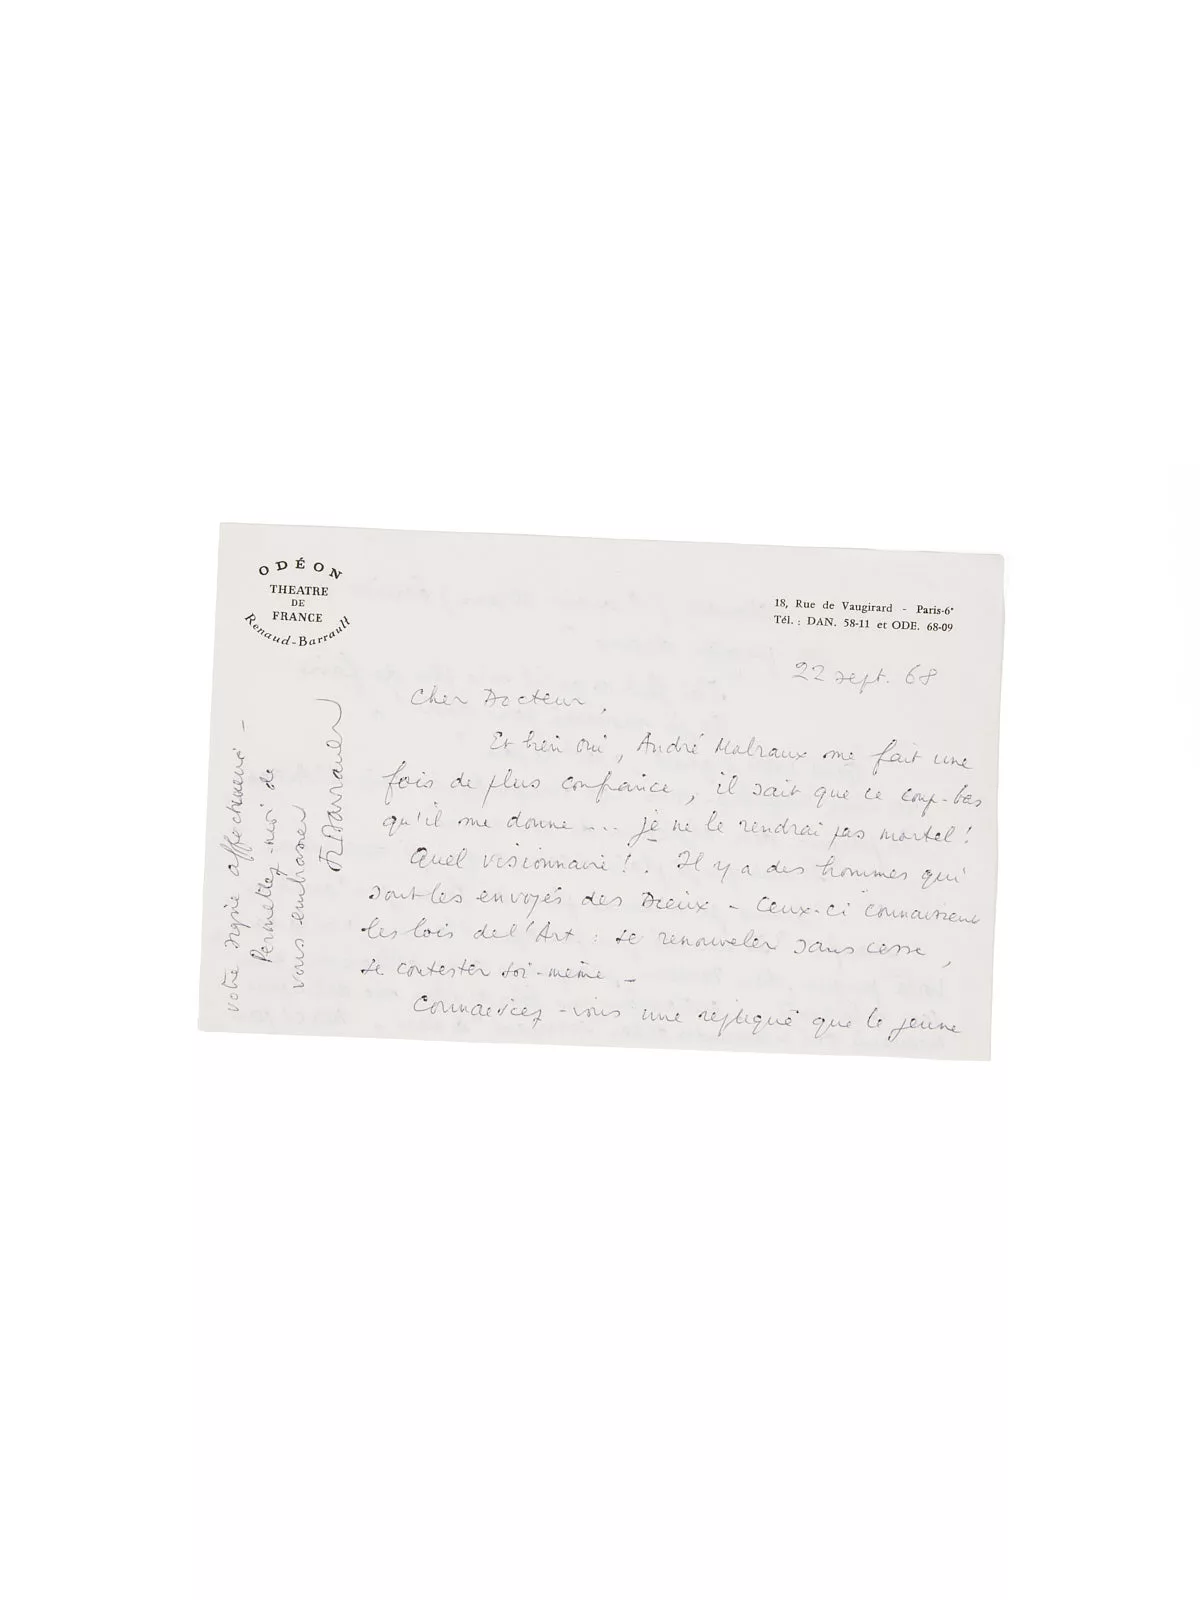 ODÉON
THEATRE
DE
FRANCE
Renaud-Barrault
18, Rue de Vaugirard - Paris-6e
Tél. : DAN. 58-11 et ODE. 68-09
22 sept. 68
Cher Docteur,
Et bien oui, André Malraux me fait une
fois de plus confiance, il sait que ce coup-bas
qu'il me donne... je ne le rendrai pas mortel !
Quel visionnaire !. Il y a des hommes qui
sont les envoyés des Dieux - Ceux-ci connaissent
les lois de l'Art : se renouveler sans cesse,
se contester soi-même -
Connaissez-vous une réplique que le jeune
votre signe affectueux -
Permettez-moi de
vous embrasser
JLBarrault